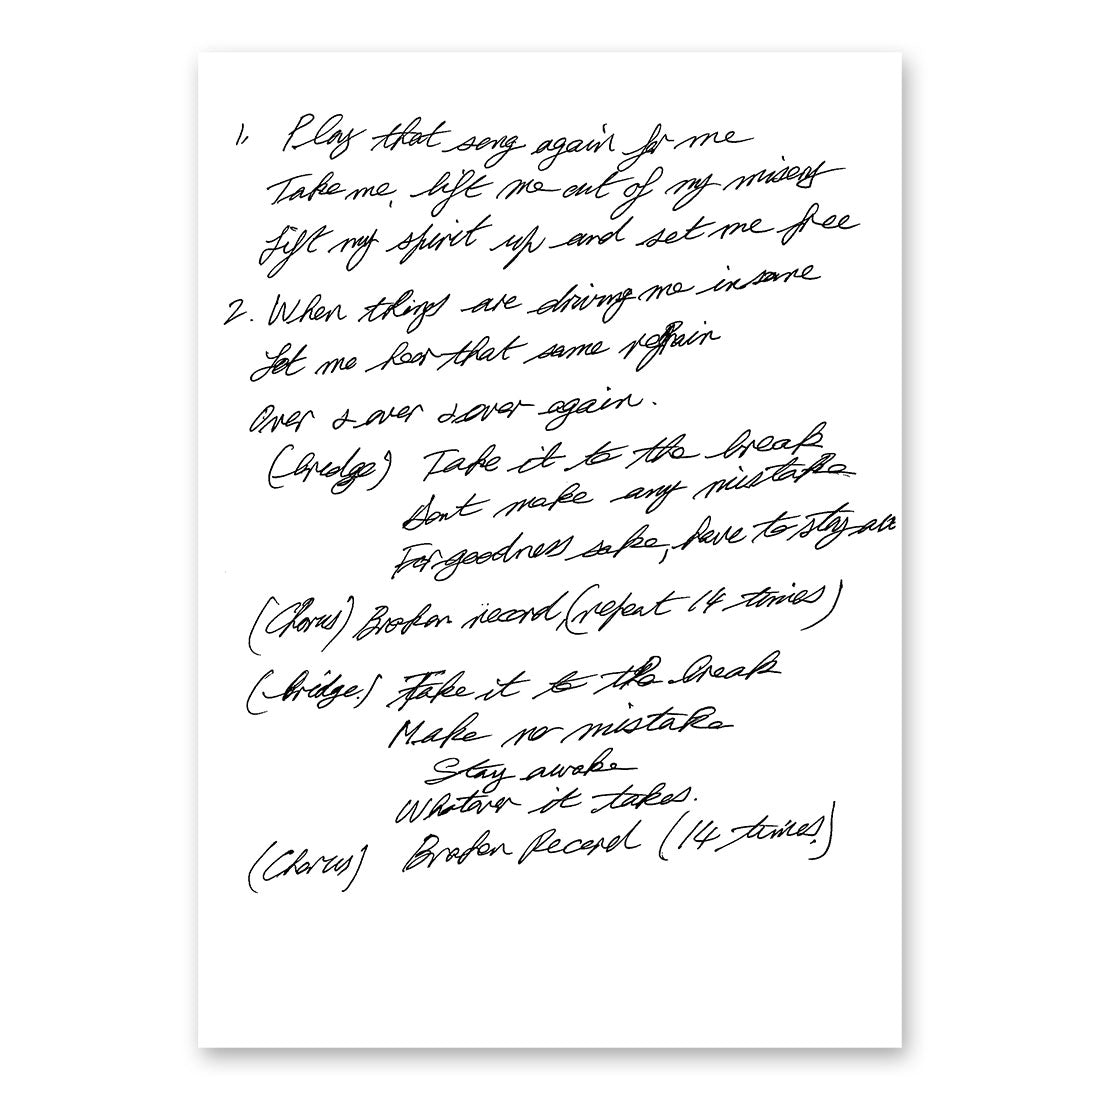 1. Play that song again for me
Take me, lift me out of my misery
Lift my spirit up and set me free
2. When things are driving me insane
Let me hear that same refrain
Over & over & over again.
(bridge) Take it to the break
Dont make any mistake
For goodness sake, have to stay awa
(Chorus) Broken record, (repeat 14 times)
(bridge.) Take it to the break
Make no mistake
Stay awake
Whatever it takes.
(Chorus) Broken Record (14 times.)